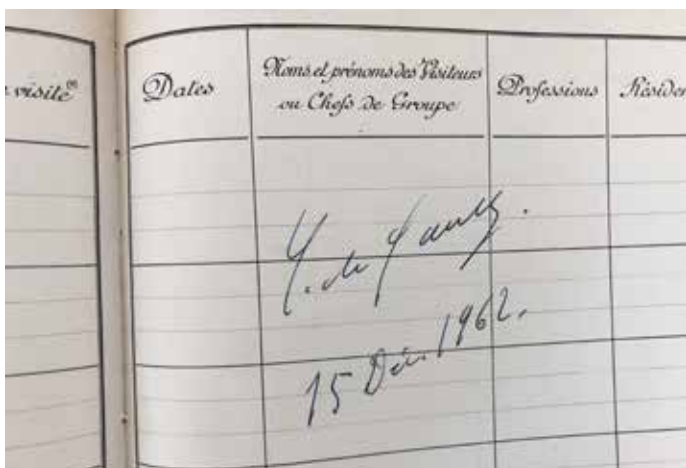 visite⁽²⁾
Dates
Noms et prénoms des Visiteurs
ou Chefs de Groupe
Professions
Résiden
de Gaulle.
15 Déc. 1962.